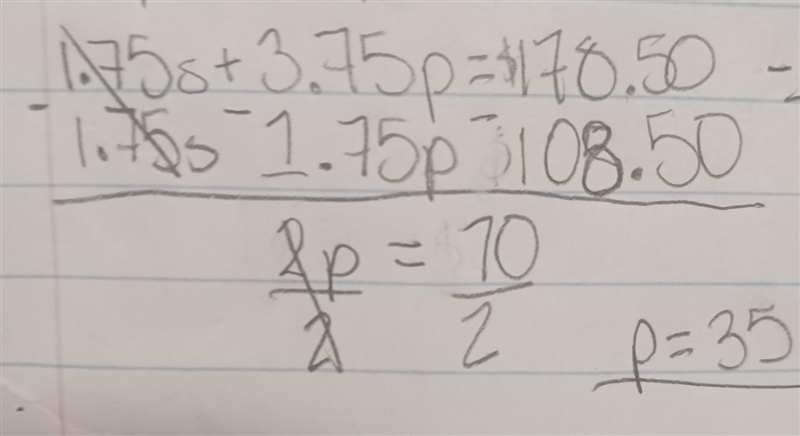 1.75s + 3.75p = $178.50 -
- 1.75s - 1.75p - 108.50
2p = 70
2 2
p = 35